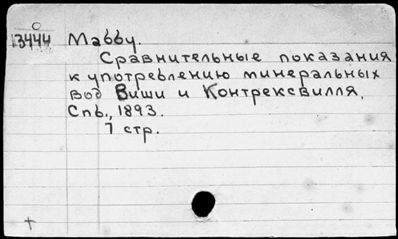 13444 Мабbу.
Сравнительные показания
к употреблению минеральных
вод Виши и Контрексвилля.
Спб., 1893.
7 стр.